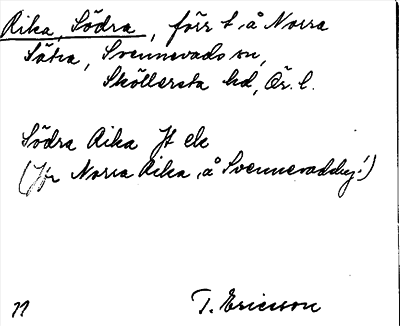 Rika, Södra, förr t. å Norra
Sätra, Svennevads sn,
Sköllersta hd, Ör. l.
Södra Rika Jt ek
(Jfr Norra Rika, å Svennevadsby!)
T. Ericsson